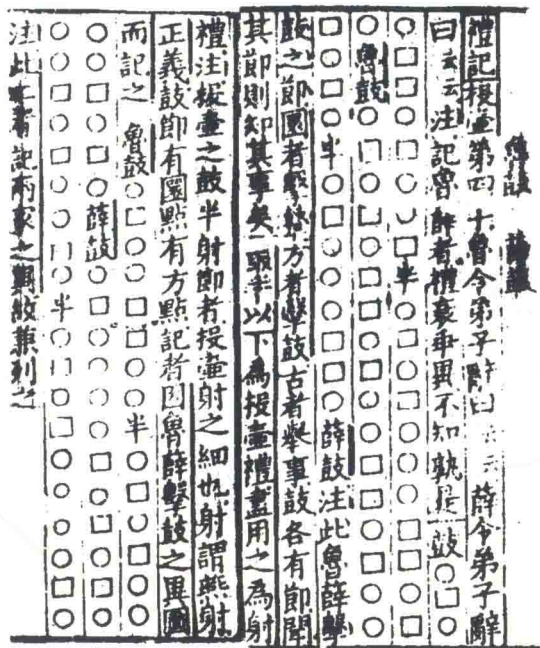 薛鼓
禮記投壺第四十魯令弟子辭曰云云薛令弟子辭
曰云云注記魯薛者禮衰乖異不知孰是 鼓○□○
○□□○□○○□半○□○□○○○□□○□
○魯鼓○□○○○□□○□○○□□○□○
○□□○半○□○○○□□○薛鼓注此魯薛擊
鼓之節圜者擊鼙方者擊鼓古者舉事鼓各有節聞
其節則知其事矣一取半以下為投壺禮盡用之為射
禮注投壺之鼓半射節者投壺射之細也射謂燕射
正義鼓節有圜點有方點記者因魯薛擊鼓之異圖
而記之 魯鼓○□○○□□○○半○□○○□○○
○○□○□○薛鼓○□○○○○□○□○□○
○○□○□○○□○半○□○□○○○○□○
注此二者記兩家之異故兼列之